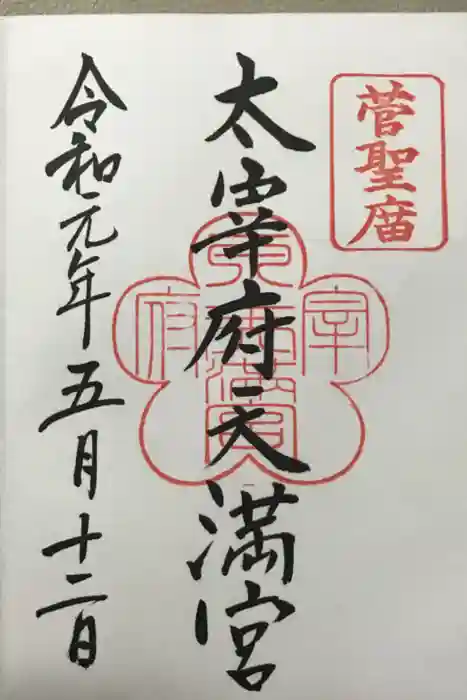 菅聖庿
太宰府天満宮
令和元年五月十二日